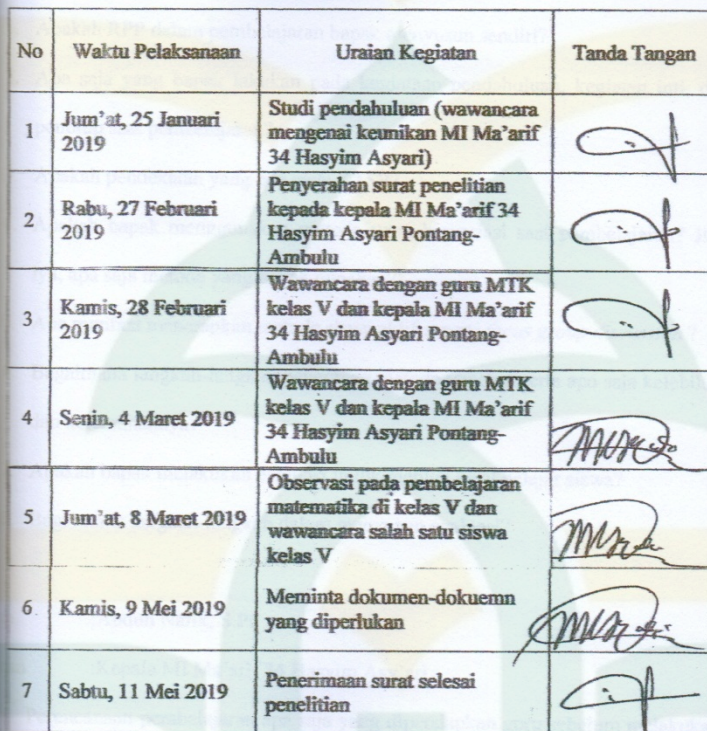 No Waktu Pelaksanaan Uraian Kegiatan Tanda Tangan
1 Jum'at, 25 Januari 2019 Studi pendahuluan (wawancara
mengenai keunikan MI Ma'arif
34 Hasyim Asyari)
2 Rabu, 27 Februari 2019 Penyerahan surat penelitian
kepada kepala MI Ma'arif 34
Hasyim Asyari Pontang-
Ambulu
3 Kamis, 28 Februari 2019 Wawancara dengan guru MTK
kelas V dan kepala MI Ma'arif
34 Hasyim Asyari Pontang-
Ambulu
4 Senin, 4 Maret 2019 Wawancara dengan guru MTK
kelas V dan kepala MI Ma'arif
34 Hasyim Asyari Pontang-
Ambulu
5 Jum'at, 8 Maret 2019 Observasi pada pembelajaran
matematika di kelas V dan
wawancara salah satu siswa
kelas V
6 Kamis, 9 Mei 2019 Meminta dokumen-dokuemn
yang diperlukan
7 Sabtu, 11 Mei 2019 Penerimaan surat selesai
penelitian